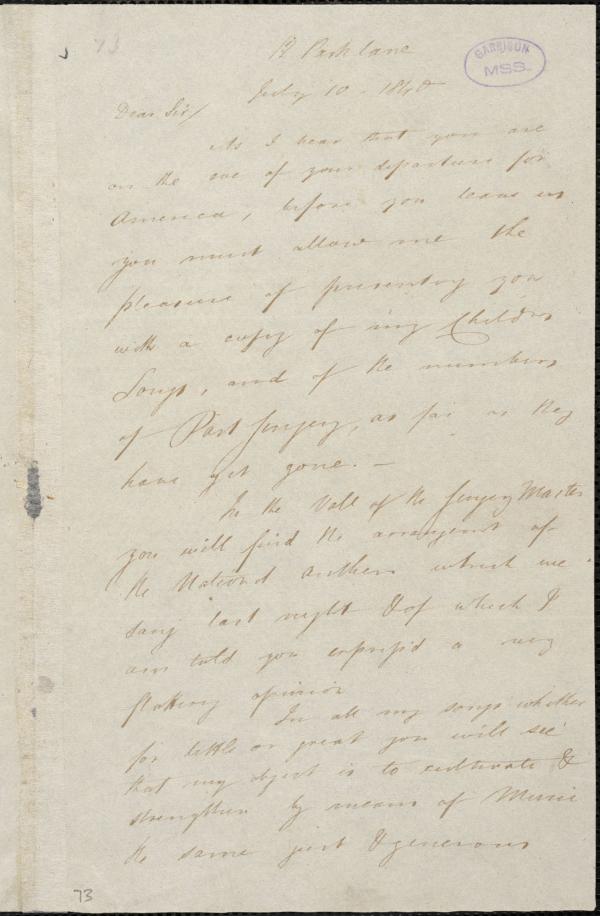 73
Park Lane
GARRISON
MSS.
July 10 - 1840
Dear Sir/
As I hear that you are
on the eve of your departure for
America, before you leave us
you must allow me the
pleasure of presenting you
with a copy of my Childrs
Songs, and of the numbers
of Part Singing, as far as they
have yet gone. -
In the Voll of the Singing Master
you will find the arrangemt of
the National Anthem which we
sang last night & of which I
am told you express'd a very
flattering opinion
In all my songs whether
for little or great you will see
that my object is to cultivate &
strengthen by means of Music
the same just & generous
73